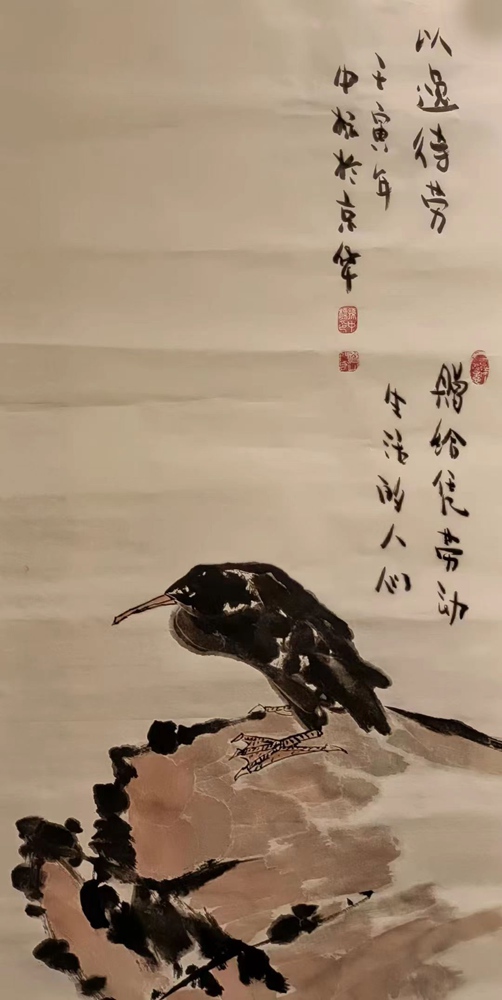 以逸待劳
壬寅年
中振於京华
赠给凭劳动
生活的人们